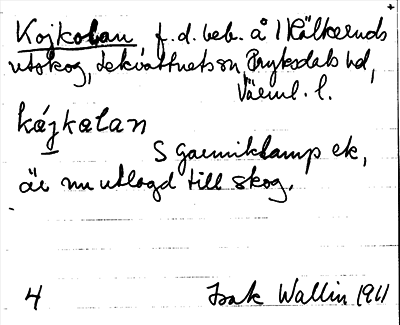 Kojkolan f.d. beb. å
utskog, Lekvattnets sn, Fryksdals hd,
Värml. l.
kájkalan
S Garnniklamp ek,
är nu utlagd till skog.
4 Isak Wallin 1911